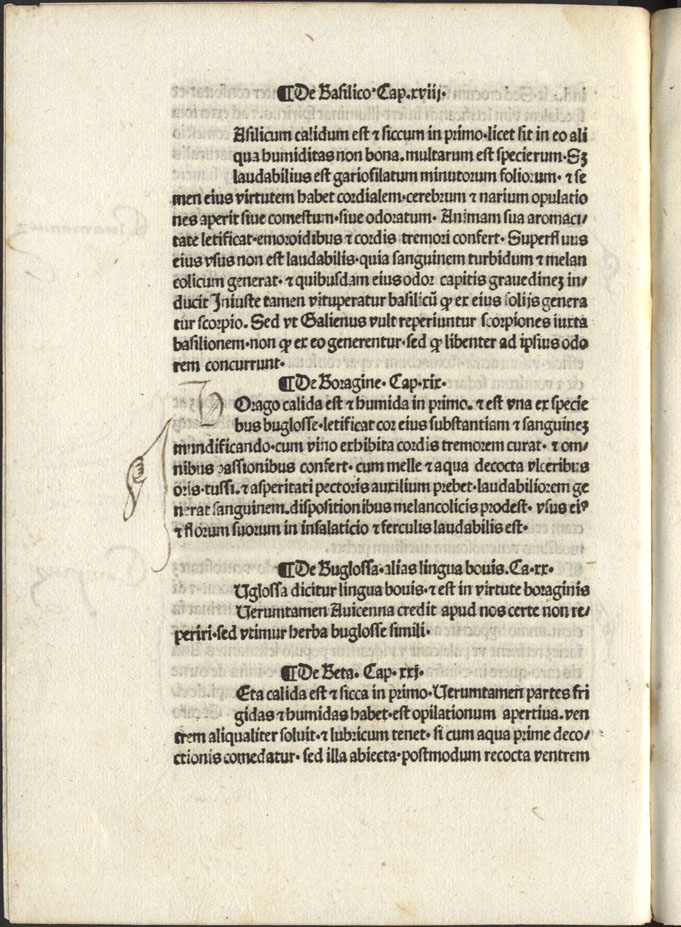 ¶De Basilico·Cap.xviij·
Asilicum calidum est ⁊ siccum in primo·licet sit in eo ali
qua humiditas non bona.multarum est specierum·Sꝫ
laudabilius est gariofilatum minutorum foliorum·⁊ se
men eius virtutem habet cordialem·cerebrum ⁊ narium opulatio
nes aperit siue comestum·siue odoratum· Animam sua aromaci/
tate letificat·emoroidibus ⁊ cordis tremori confert· Superfluus
eius vsus non est laudabilis·quia sanguinem turbidum ⁊ melan
colicum generat·⁊ quibusdam eius odor capitis grauedineꝫ in/
ducit Iniuste tamen vituperatur basilicū ꝙ ex eius folijs genera
tur scorpio. Sed vt Galienus vult reperiuntur scorpiones iuxta
basilionem·non ꝙ ex eo generentur·sed ꝙ libenter ad ipsius odo
rem concurrunt·
¶De Boragine· Cap.xix·
b Orago calida est ⁊ humida in primo. ⁊ est vna ex specie
bus buglosse·letificat cor eius substantiam ⁊ sanguineꝫ
mundificando·cum vino exhibita cordis tremorem curat·⁊ om/
nibus passionibus confert· cum melle ⁊ aqua decocta vlceribus
oris·tussi.⁊ asperitati pectoris auxilium prebet·laudabiliorem ge
nerat sanguinem.dispositionibus melancolicis prodest· vsus eiꝰ
⁊ florum suorum in insalaticio ⁊ ferculis laudabilis est·
¶De Buglossa·alias lingua bouis. Ca·xx·
Uglossa dicitur lingua bouis·⁊ est in virtute boraginis
Uerumtamen Auicenna credit apud nos certe non re/
periri·sed vtimur herba buglosse simili·
¶De Beta. Cap·xxj·
Eta calida est ⁊ sicca in primo·Uerumtamen partes fri
gidas ⁊ humidas habet·est opilationum apertiua.ven
trem aliqualiter soluit·⁊ lubricum tenet· si cum aqua prime deco/
ctionis comedatur· sed illa abiecta·postmodum recocta ventrem